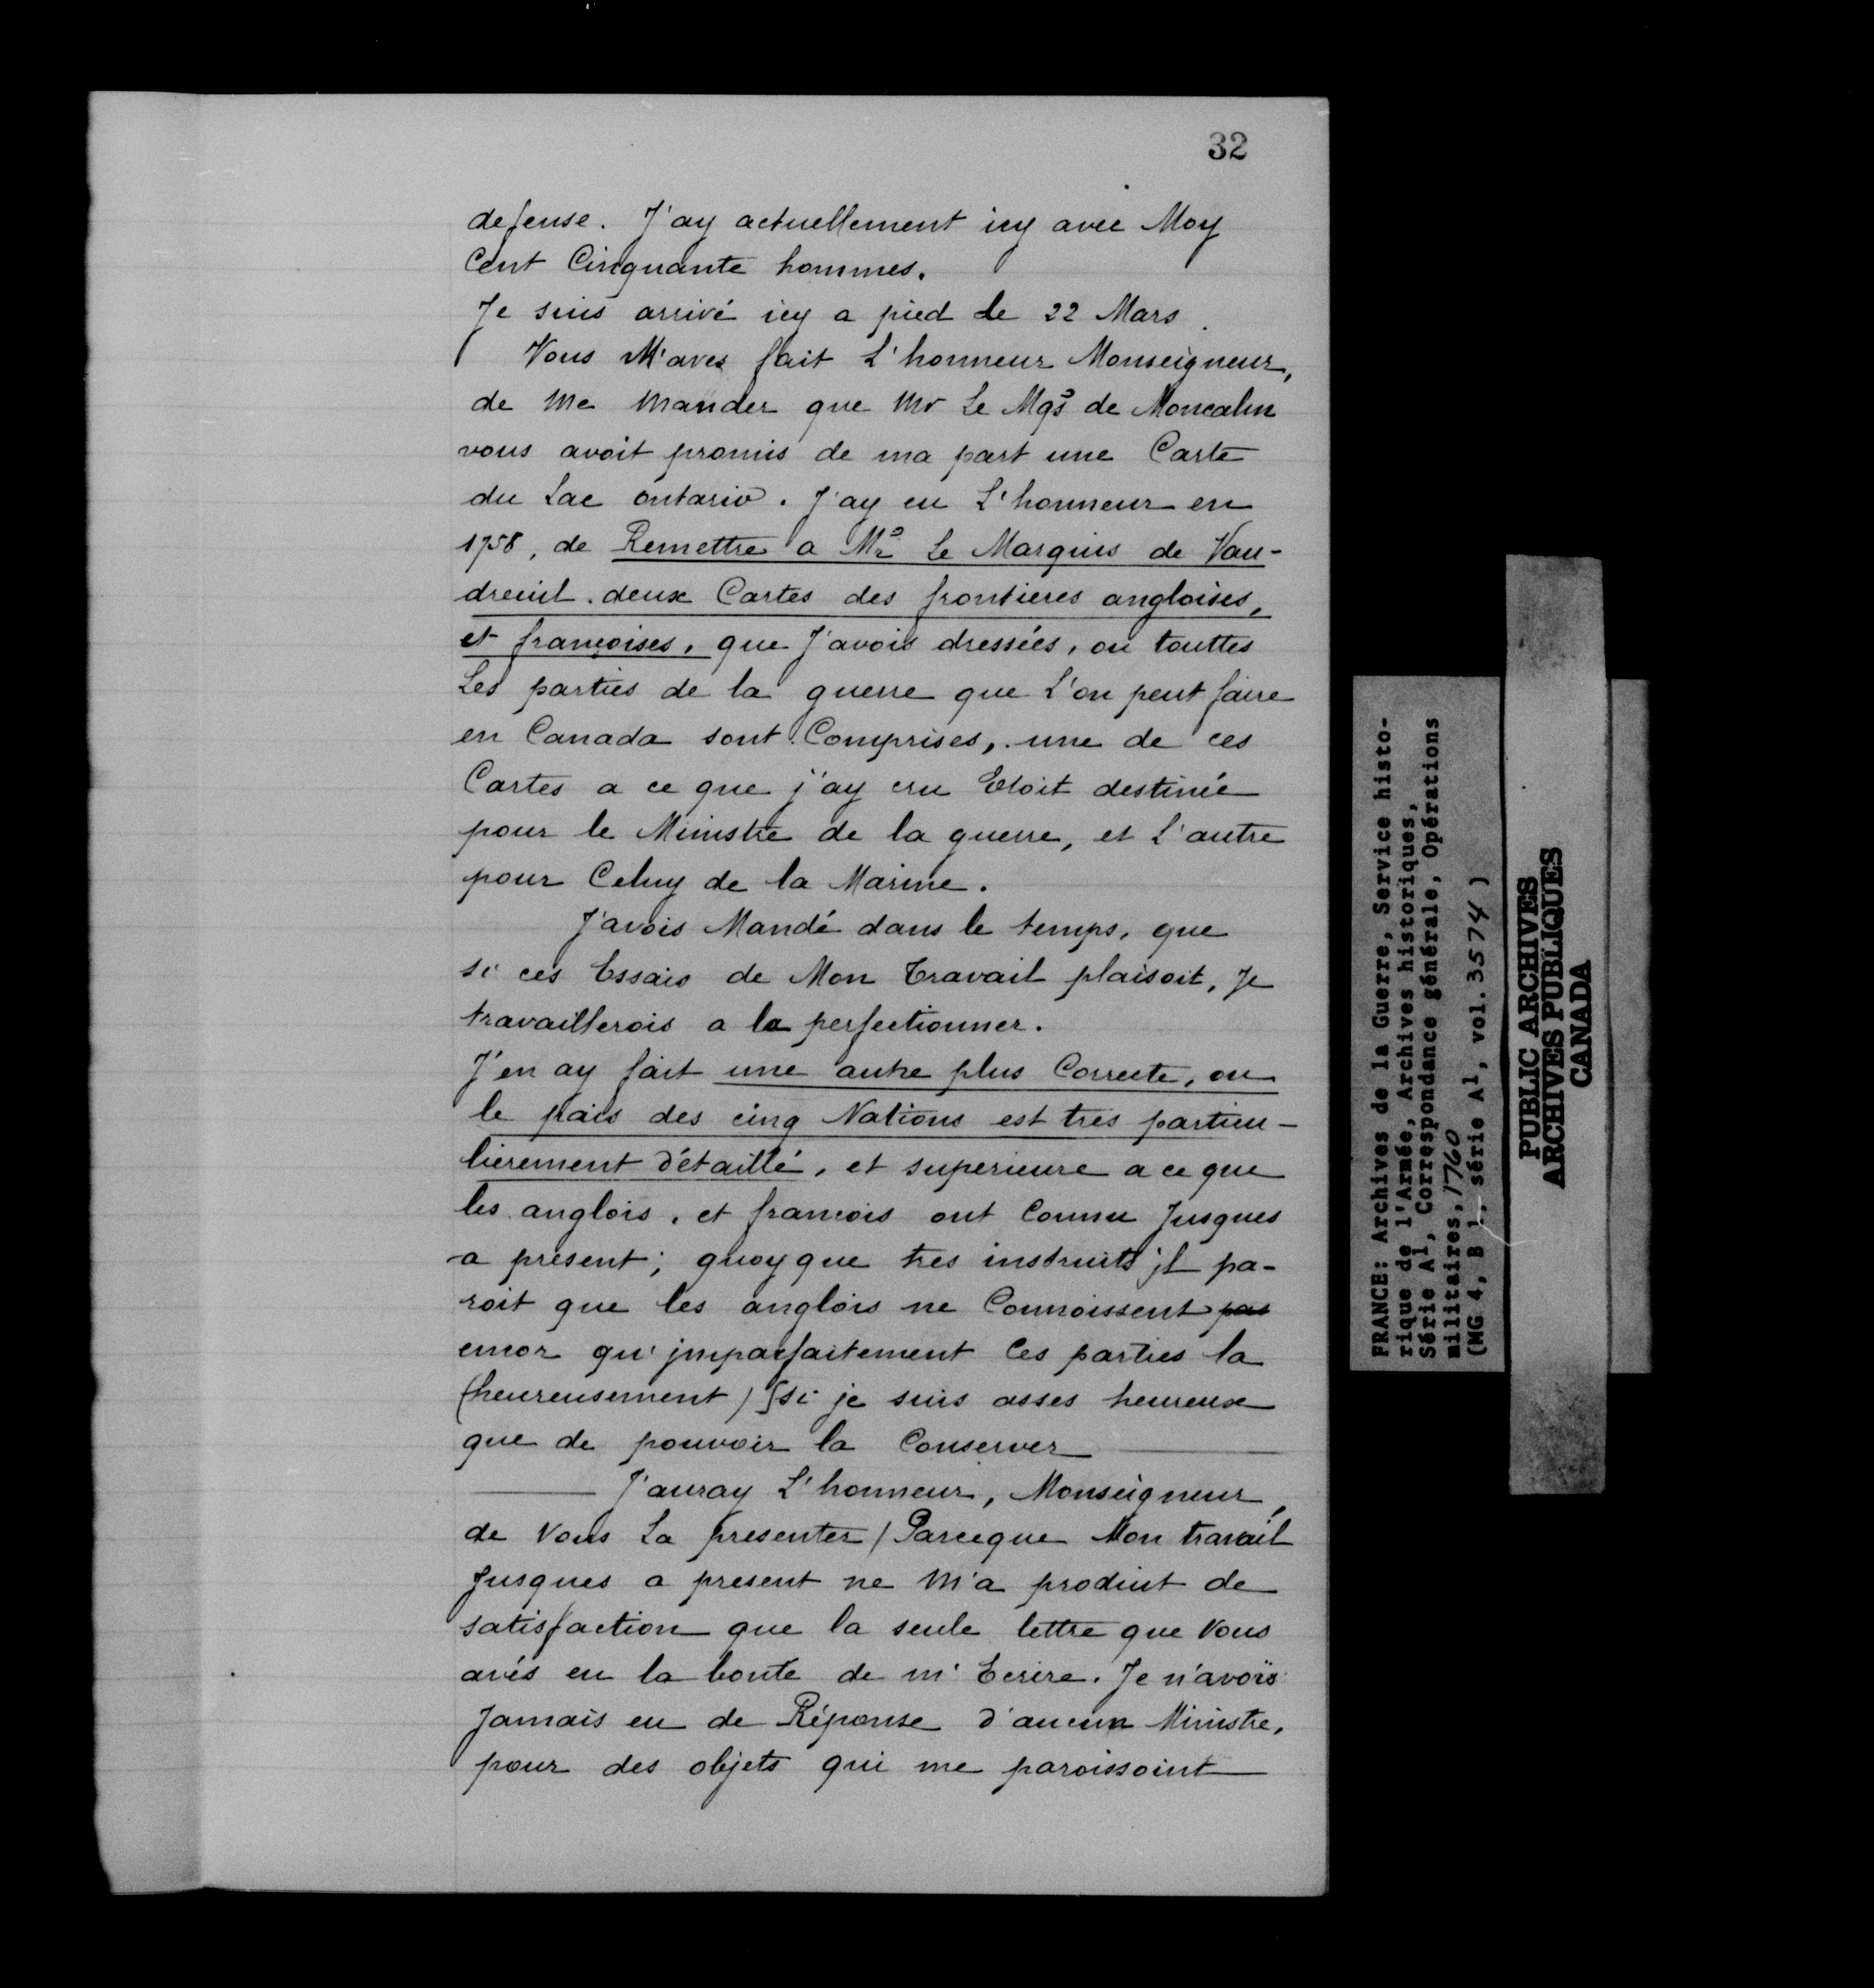 32
defense. J'ay actuellement icy avec Moy
Cent Cinquante hommes.
Je suis arrivé icy a pied le 22 Mars.
Vous M'aves fait L'honneur Monseigneur,
de Me Mander que Mr Le Mqs de Moncalm
vous avoit promis de ma part une Carte
du Lac ontario. J'ay eu L'honneur en
1758, de Remettre a Mr Le Marquis de Vau-
dreuil. deux Cartes des frontieres angloises,
et françoises, que J'avois dressées, ou touttes
Les parties de la guerre que L'on peut faire
en Canada sont Comprises, une de ces
Cartes a ce que j'ay cru Etoit destinée
pour le Ministre de la guerre, et L'autre
pour Celuy de la Marine.
J'avois Mandé dans le temps, que
si ces Essais de Mon Travail plaisoit, Je
travaillerois a la perfectionner.
J'en ay fait une autre plus Correcte, ou
le païs des cinq Nations est tres particu-
lierement détaillé, et superieure a ce que
les anglois, et francois ont Connu Jusques
a présent; quoyque tres instruits jl pa-
roit que les anglois ne Connoissent pas
encor qu'jmparfaitement Ces parties la
(heureusement) si je suis asses heureux
que de pouvoir la Conserver
J'auray L'honneur, Monseigneur,
de Vous La presenter / Parceque Mon travail
Jusques a present ne M'a produit de
satisfaction que la seule lettre que Vous
avés eu la bonté de m'Ecrire. Je n'avois
Jamais eu de Réponse d'aucun Ministre,
pour des objets qui me paroissoint
FRANCE: Archives de la Guerre, Service histo-
rique de l'Armée, Archives historiques,
Série A1, Correspondance générale, Opérations
militaires, 1760
(MG 4, B 1, série A1, vol. 3574 )
PUBLIC ARCHIVES
ARCHIVES PUBLIQUES
CANADA